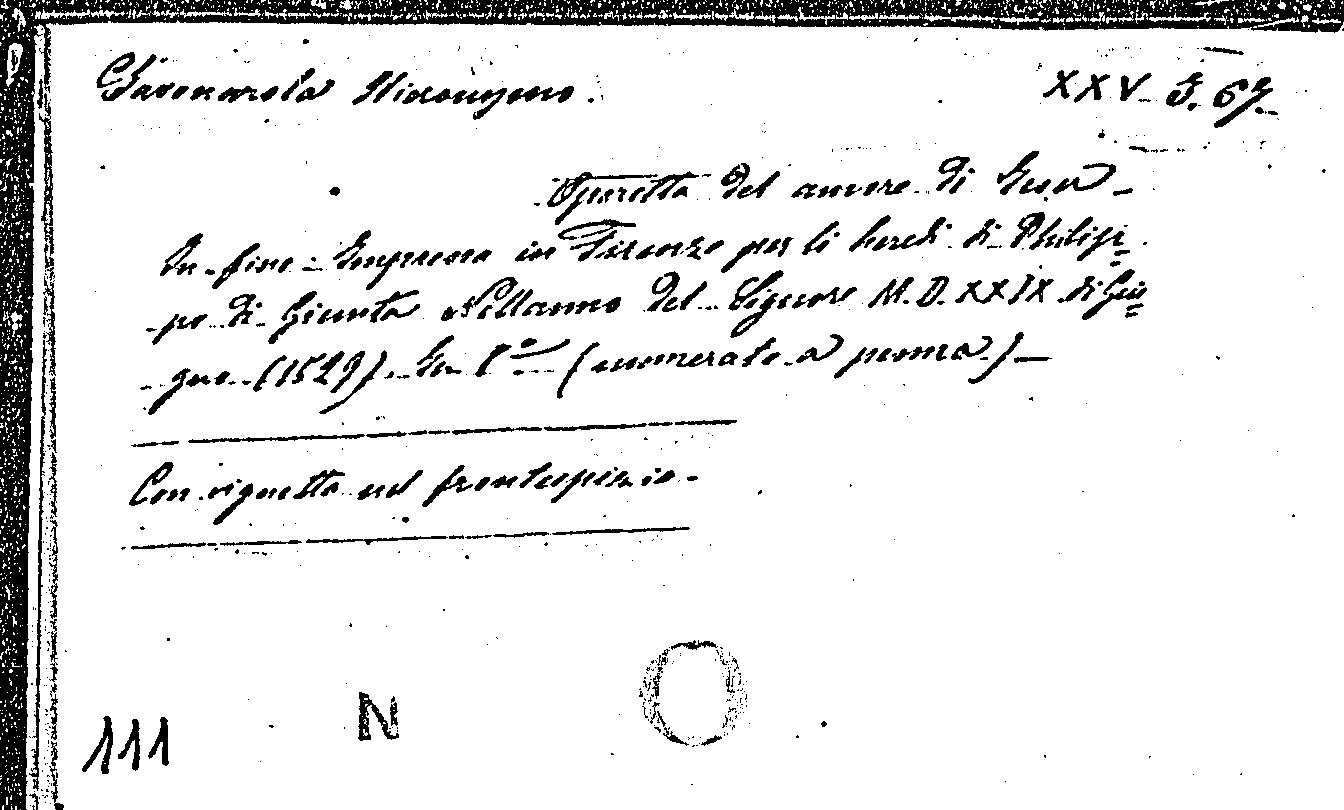 Savonarola Hieronymo. XXV. G. 67.
Operetta del amore di Gesu -
In fine: Impressa in Firenze per li heredi di Philip=
-po di Giunta Nellanno del Signore M.D.XXIX. di Giu=
-gno. (1529). In 8º (numerato a penna.) —
Con vignetta nel frontespizio.
111 N